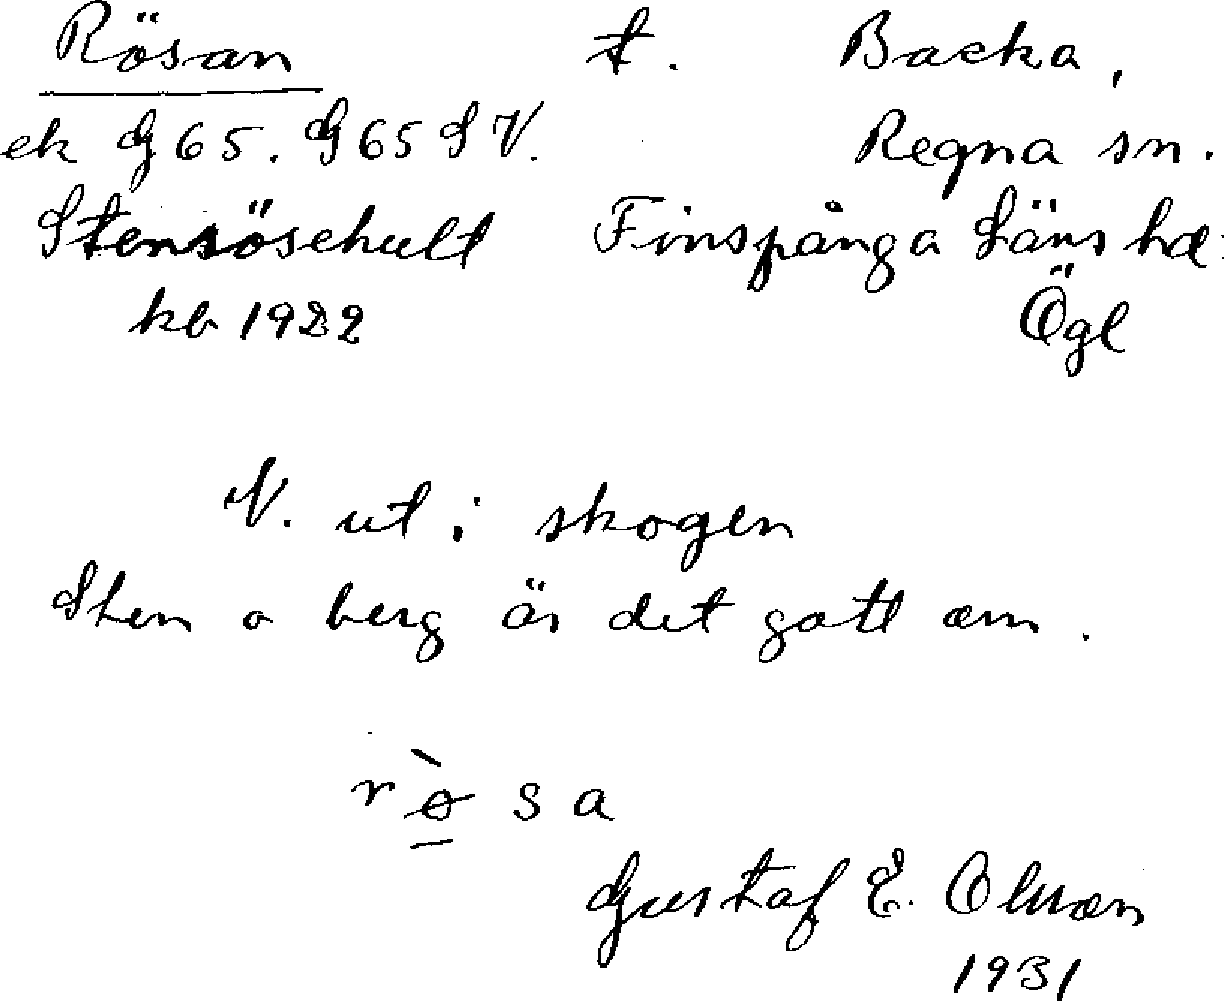 Rösan t. Backa,
ek G 65. G 65 S V. Regna sn.
Stensösehult Finspånga Läns hd:
kb 1922 Ögl
V. ut i skogen
Sten o berg är det gott om.
r ò s a
Gustaf E. Olsson
1931